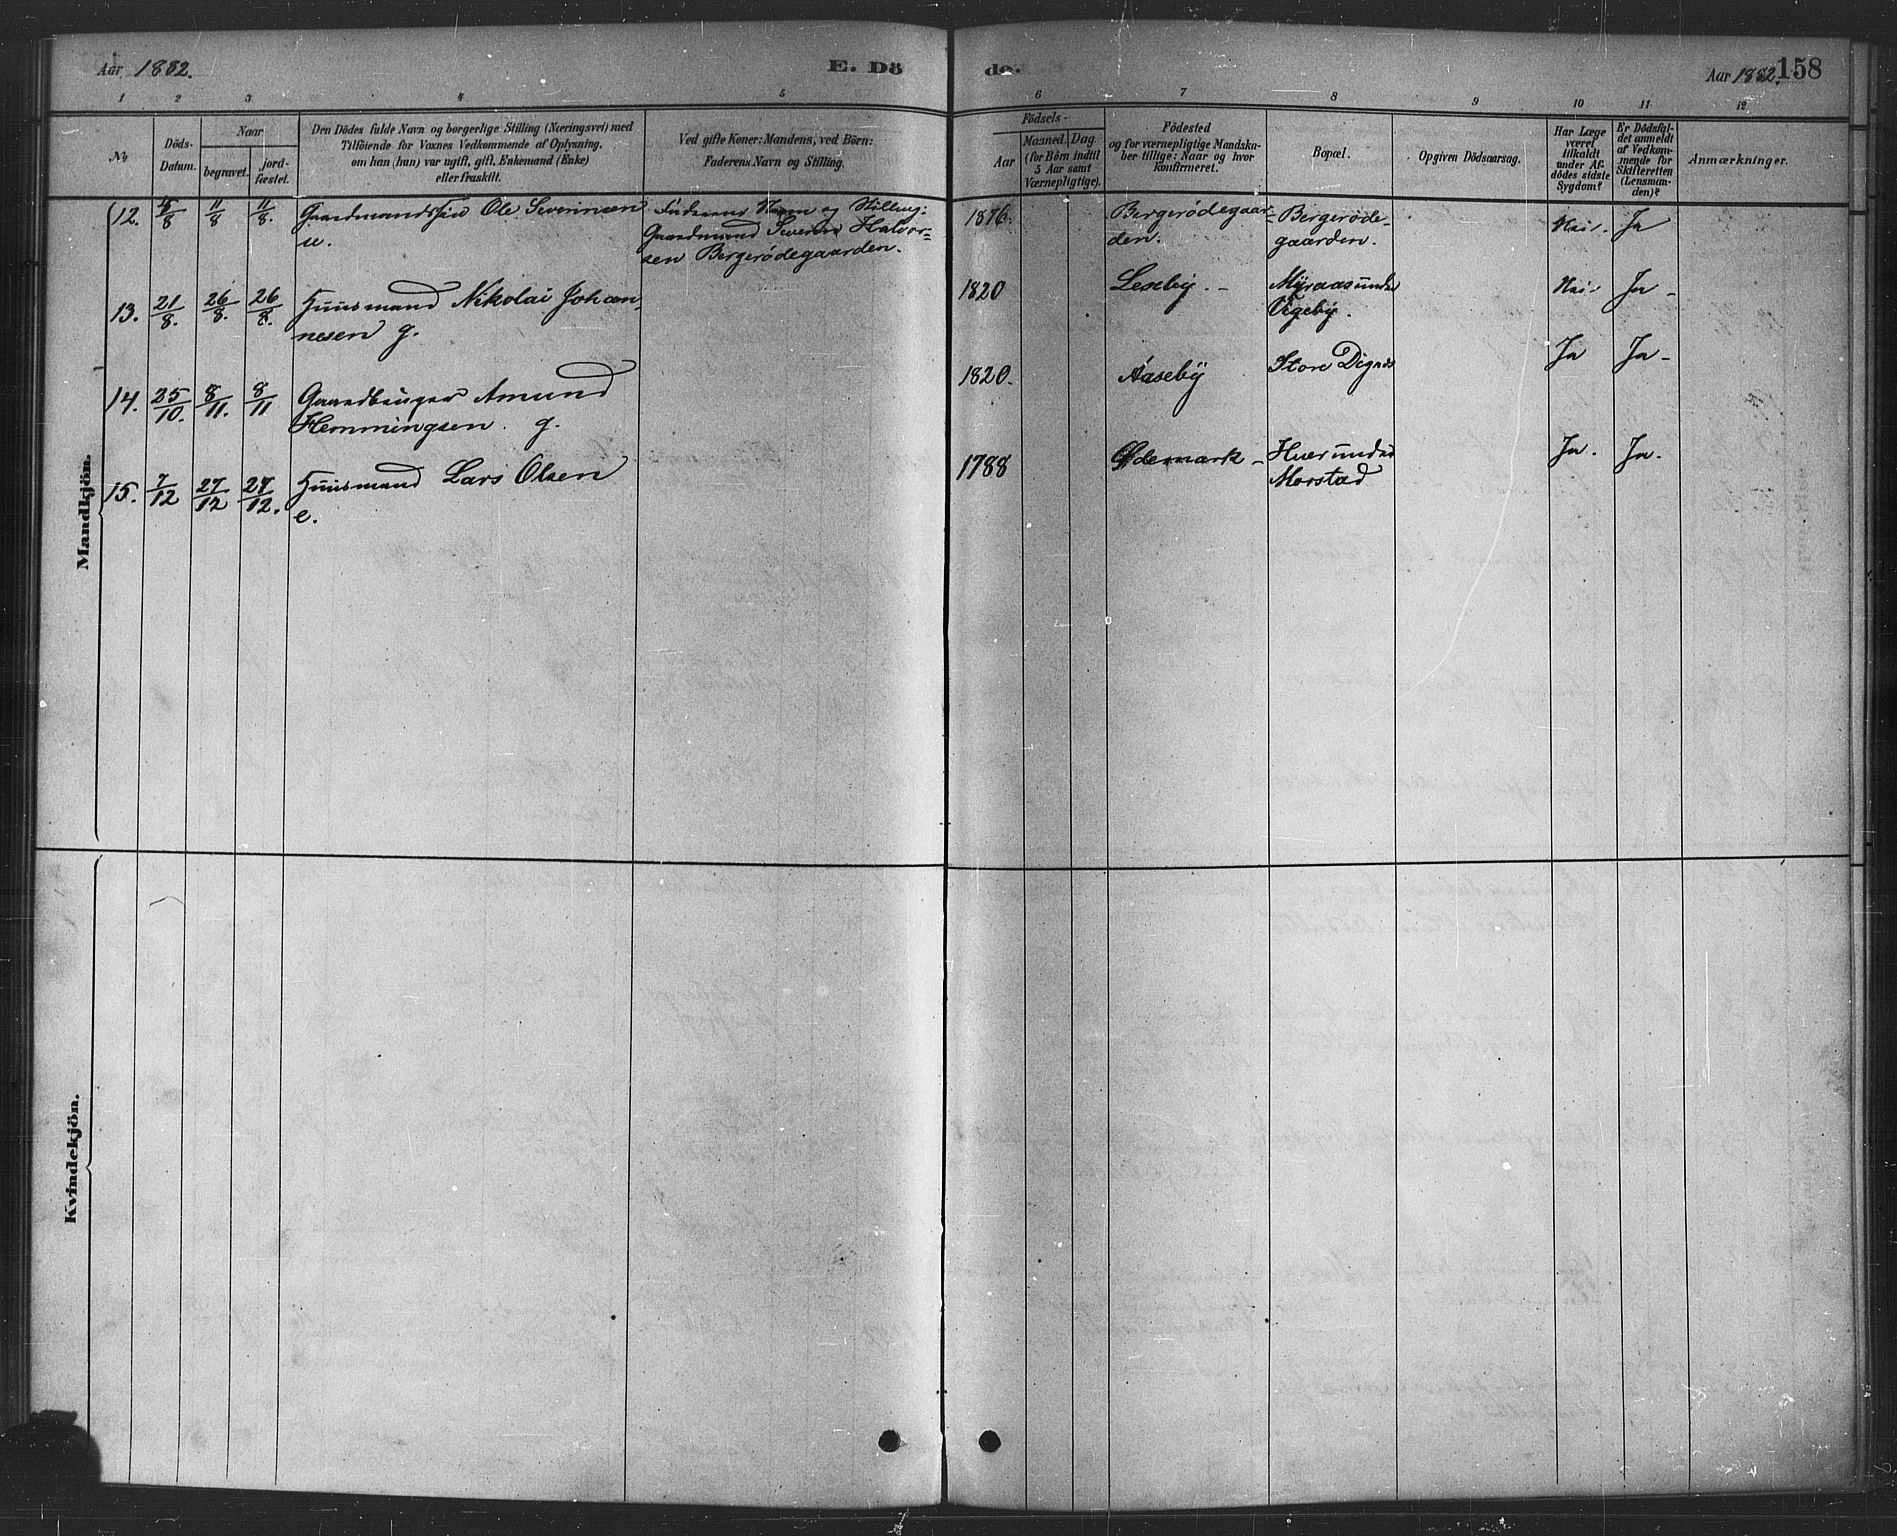 Aar 1882.
E. Dö
de.
Aar 1882.
158
1 2 3 4 5 6 7 8 9 10 11 12
No
Döds-
Datum.
Naar
begravet.
jord-
fæstet.
Den Dödes fulde Navn og borgerlige Stilling (Næringsvei) med
Tilföiende for Voxnes Vedkommende af Oplysning,
om han (hun) var ugift, gift, Enkemand (Enke)
eller fraskilt.
Ved gifte Koner: Mandens, ved Börn:
Faderens Navn og Stilling.
Födsels-
Aar
Maaned.
Dag.
(for Börn indtil
5 Aar samt
Værnepligtige).
Födested
og for værnepligtige Mandska-
ber tillige: Naar og hvor
konfirmeret.
Bopæl.
Opgiven Dödsaarsag.
Har Læge
været
tilkaldt
under Af-
dödes sidste
Sygdom?
Er Dödsfal-
det anmeldt
af Vedkom-
mende for
Skifteretten
(Lensman-
den)?
Anmærkninger.
Mandkjön.
12. 5/8 11/8 11/8. Gaardmandssön Ole Severinsen
u.
Faderens Navn og Stilling:
Gaardmand Severin Halvor-
sen Bergerødegaarden.
1876. Bergerødegaar-
den.
Bergeröde-
gaarden.
Nei. Ja
13. 21/8. 26/8. 26/8. Huusmand Nikolai Johan-
nesen g.
1820 Leseby. Myraas under
Vigeby.
Nei. Ja
14. 25/10. 8/11. 8/11 Gaardbruger Amund
Hemmingsen. g.
1820. Aaseby Store Dignæs
Ja Ja
15. 7/12 27/12 27/12. Huusmand Lars Olsen
e.
1788 Ødemark Huer under
Morstad
Ja. Ja.
Kvindekjön.